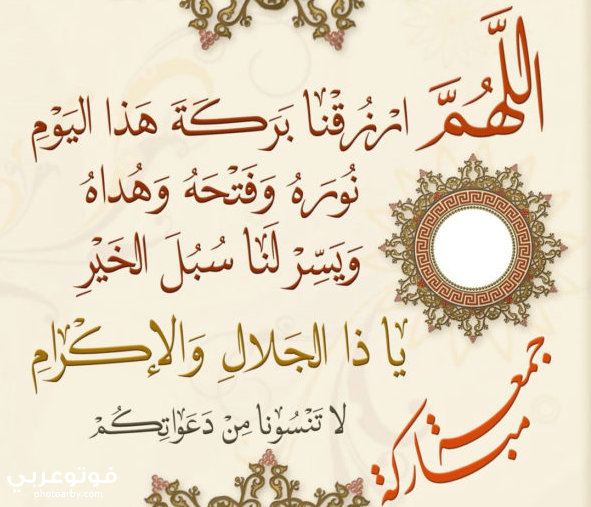 اللَّهُمَّ ارْزُقْنَا بَرَكَةَ هَذَا اليَوْمِ
نُورَهُ وَفَتْحَهُ وَهُدَاهُ
وَيَسِّرْ لَنَا سُبُلَ الخَيْرِ
يا ذا الجَلالِ وَالإكْرامِ
لا تَنْسُونا مِنْ دَعَوَاتِكُمْ
جمعة مباركة
فوتوعربي
photoarby.com